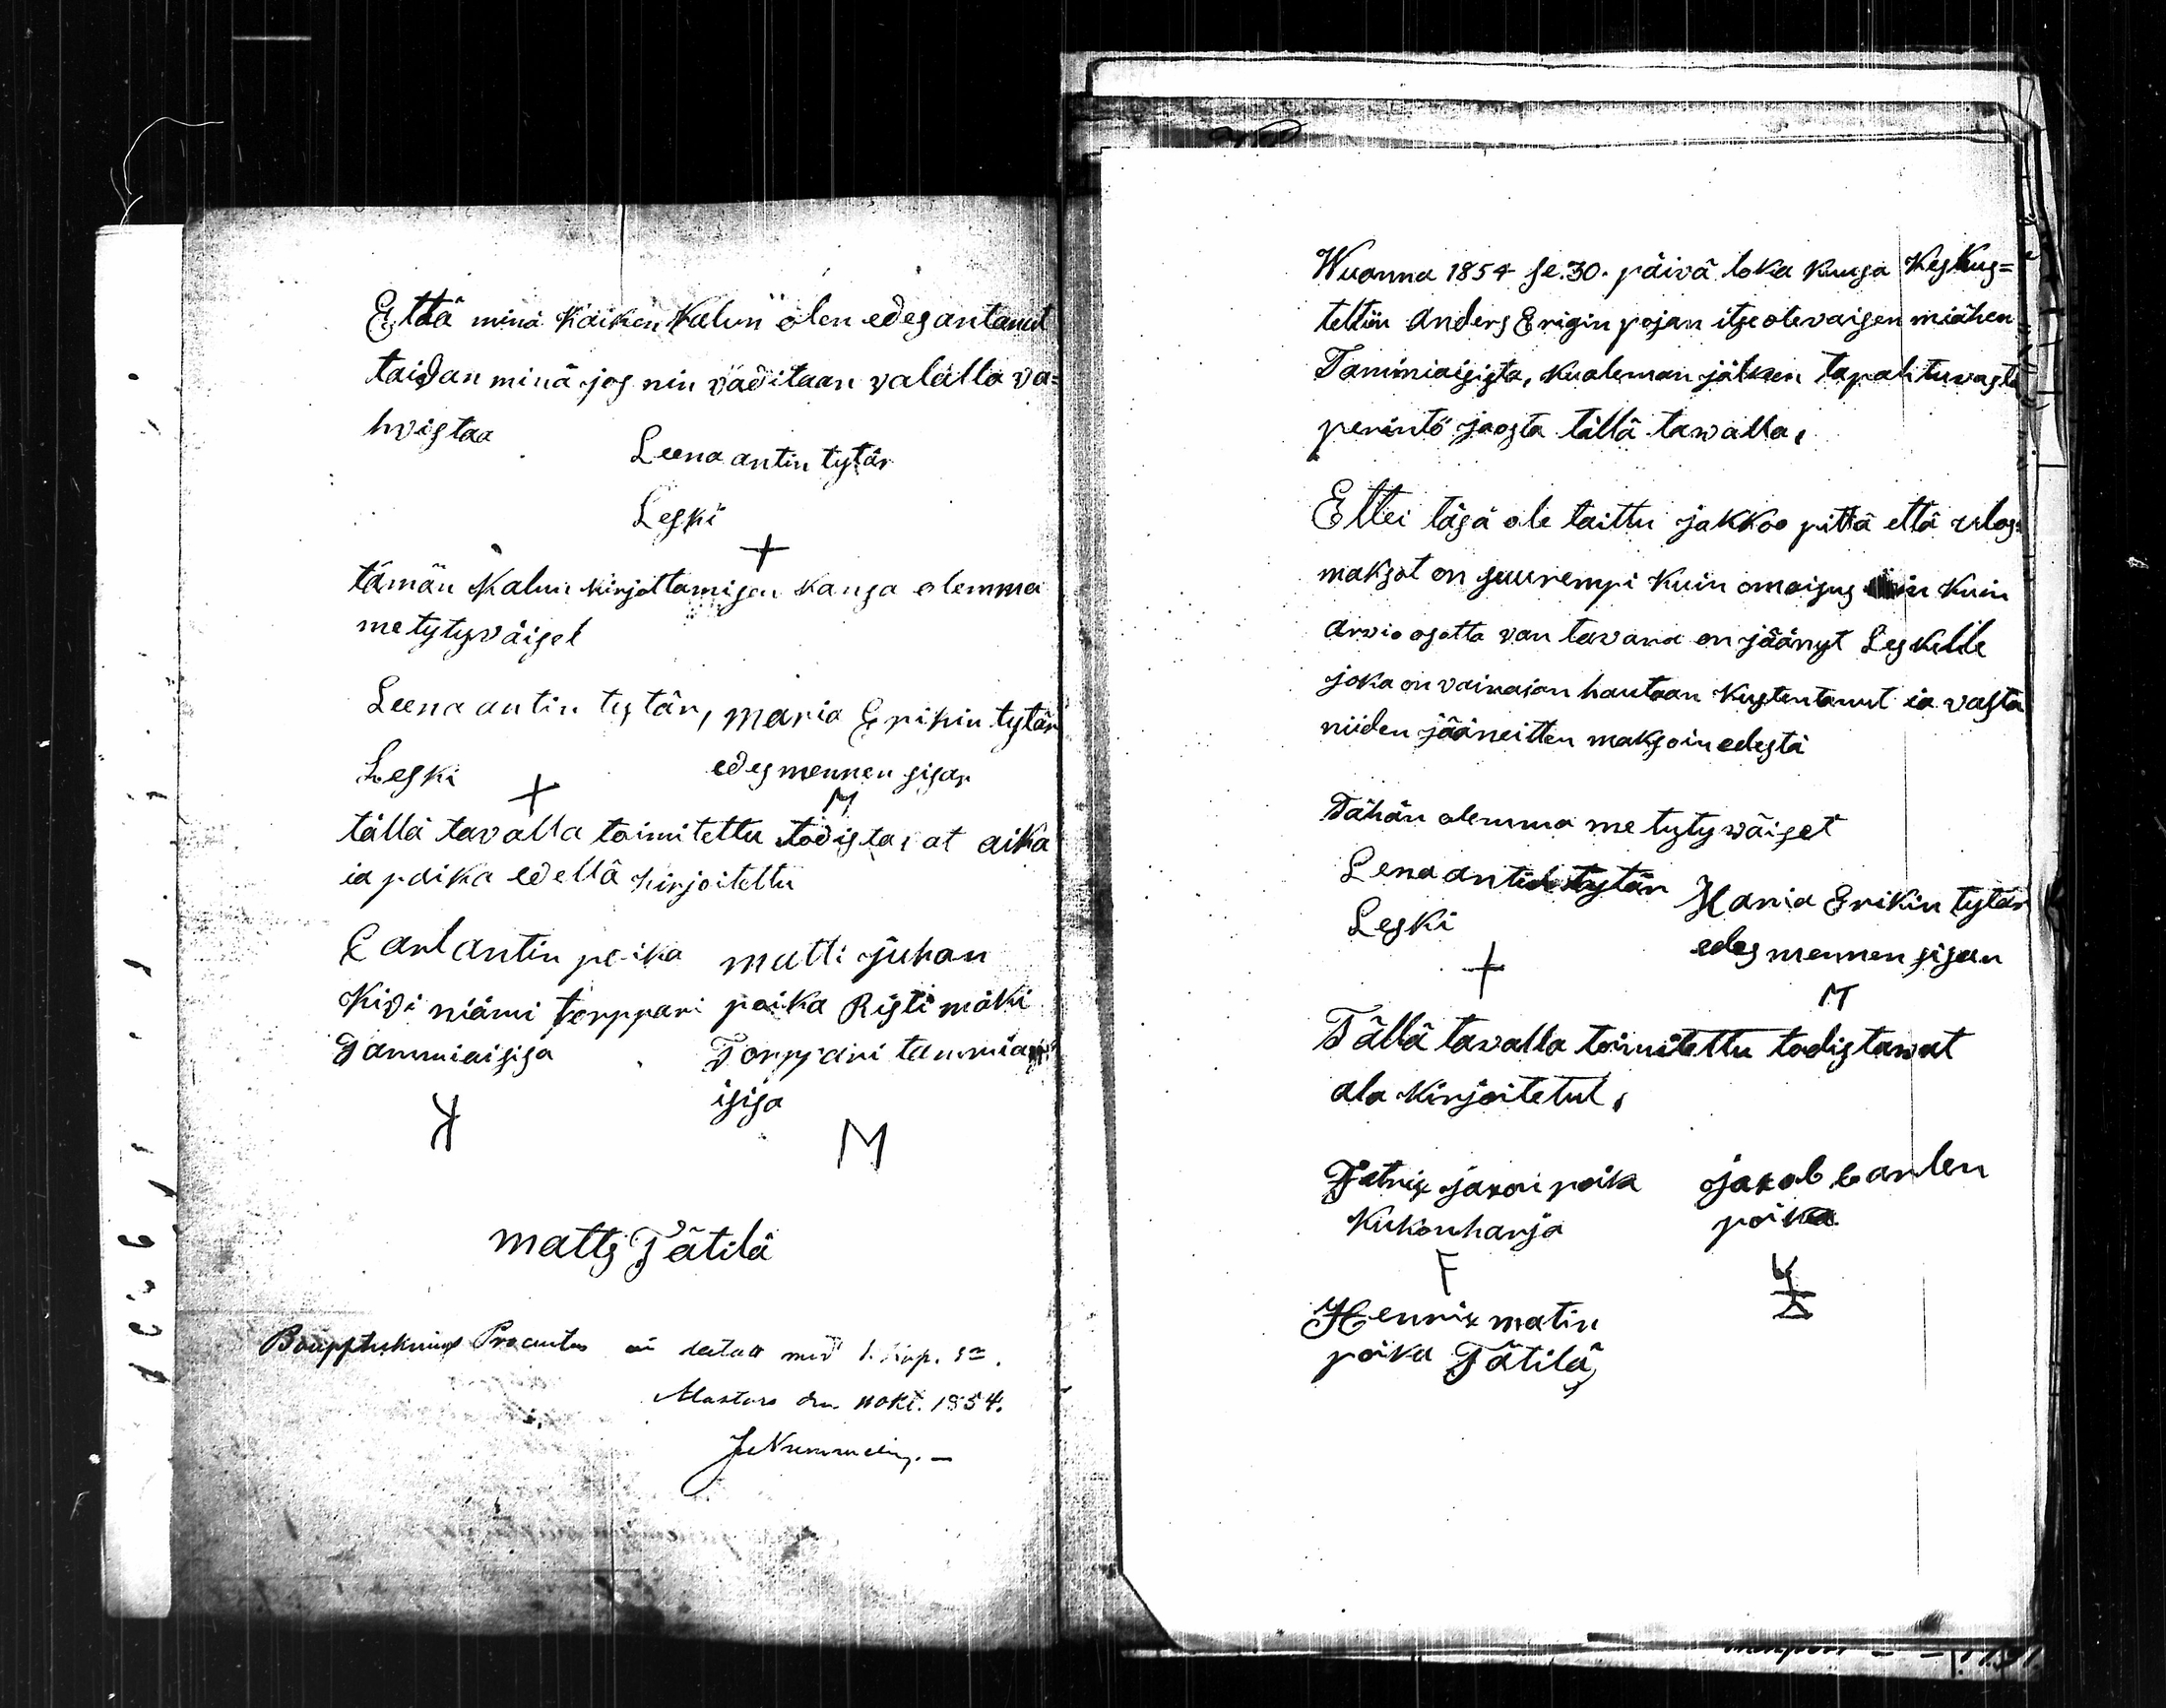 Että minä kaiken kalun olen edesantanut
taidan minä jos nin väditaan valalla va=
hvistaa
Leena antin tytär
Leski
+
tämän kalun kirjottamisen kansa olemma
me tytyväiset
Leena antin tytär, maria Erikin tytär
Leski edes mennen sisar
+ M
tällä tavalla toimitettu todistavat aika
ia paika edellä kirjoitettu
Carl antin poika matti juhan
Kivi niämi torppari poika Risti mäki
Tammiaisisa Torppari tammia
isisa
M
matts Tätilä
Bouppteckning Procenten
Masku den okt. 1854.
Wuonna 1854 se. 30. päivä loka kuusa keskus=
teltiin Anders Erigin pojan itseolevaisen miähen
Tammiaisista, kualeman jälkeen tapahtuvasta
perintö jaosta tällä tawalla,
Ettei täsä ole taittu jakkoo pittä että ulos
maksot on suurempi kuin omaisus nin kuin
arvio osotta van tavara on jäänyt Leskelle
joka on vainaian hautaan kustantanut ia vasta
niiden jääneitten maksoin edestä
Tähän olemma me tytywäiset
Lena antin tytär Maria Erikin tytär
Leski edes mennen sisar
+ M
Tällä tavalla toimitettu todistawat
ala kirjoitetut,
jakob carlen
Kukonharja poika
F
Henrik matin
poika Tätilä